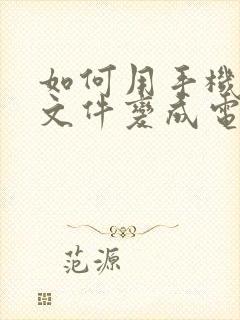 如何用手機
文件變成電
范源